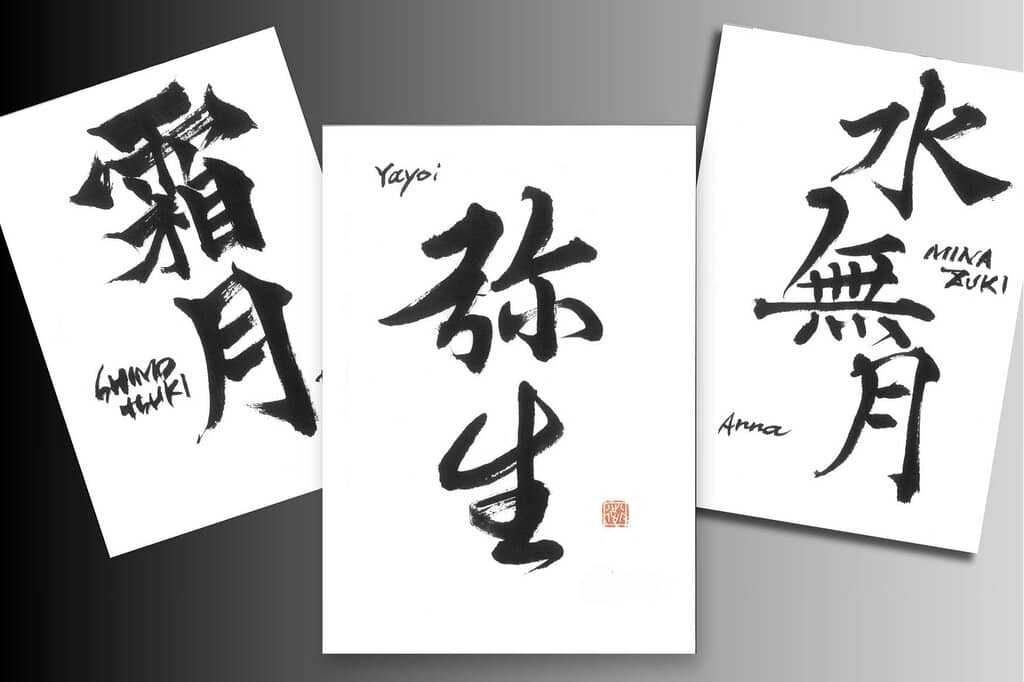 霜月
SHIMO
TSUKI
Yayoi
弥生
水無月
MINA
ZUKI
Anna